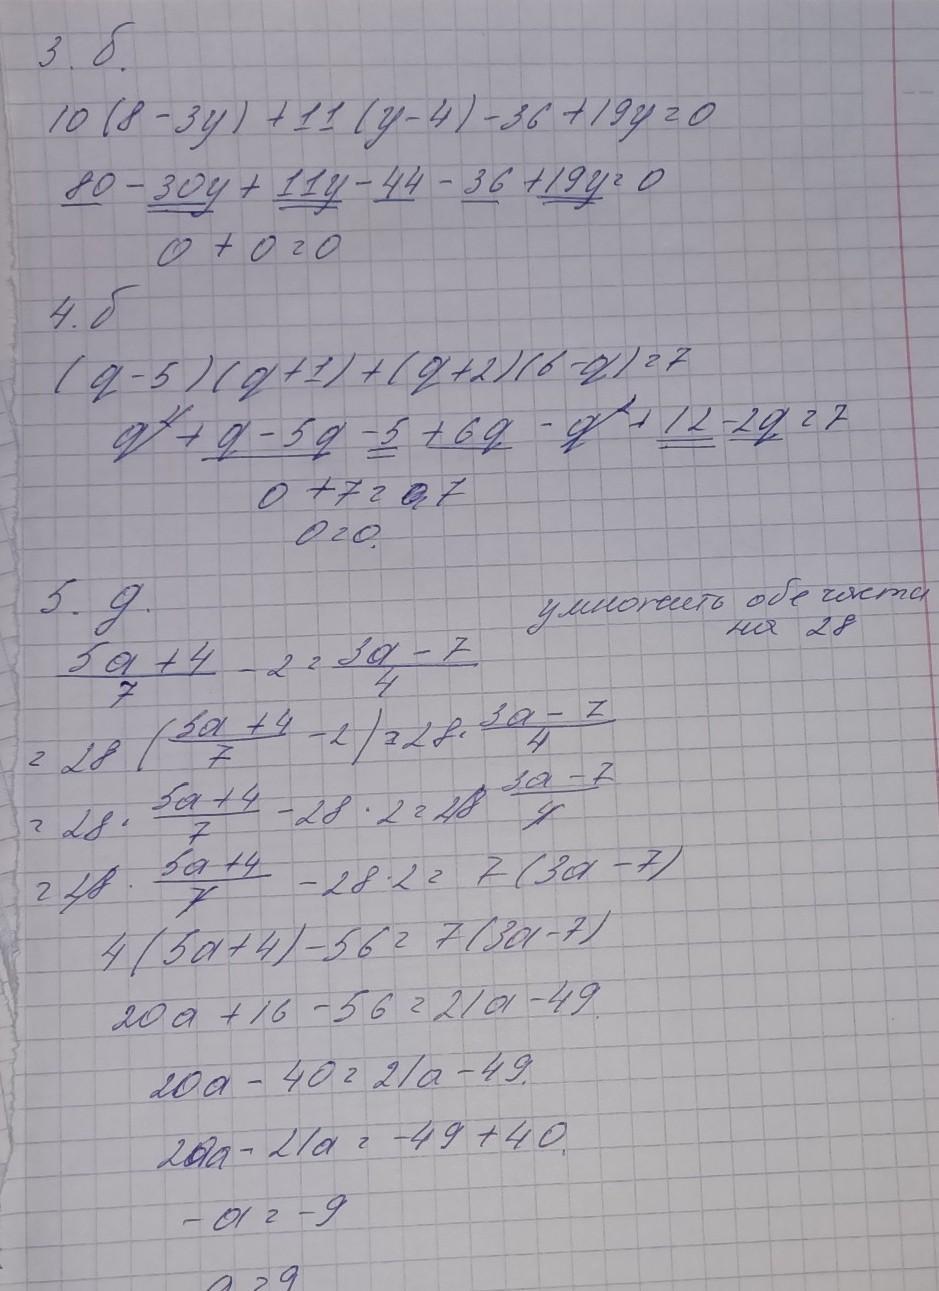 3. б.
10 (8 - 3y) + 11 (y - 4) - 36 + 19y = 0
80 - 30y + 11y - 44 - 36 + 19y = 0
0 + 0 = 0
4. б
(q - 5)(q + 1) + (q + 2)(6 - q) = 7
q² + q - 5q - 5 + 6q - q² + 12 - 2q = 7
0 + 7 = 7
0 = 0.
5. д.
умножить обе части
на 28
(5a + 4)/7 - 2 = (3a - 7)/4
= 28 ((5a + 4)/7 - 2) = 28 · (3a - 7)/4
= 28 · (5a + 4)/7 - 28 · 2 = 28 (3a - 7)/4
= 28 · (5a + 4)/7 - 28 · 2 = 7 (3a - 7)
4 (5a + 4) - 56 = 7 (3a - 7)
20a + 16 - 56 = 21a - 49.
20a - 40 = 21a - 49.
20a - 21a = -49 + 40.
- a = -9
a = 9